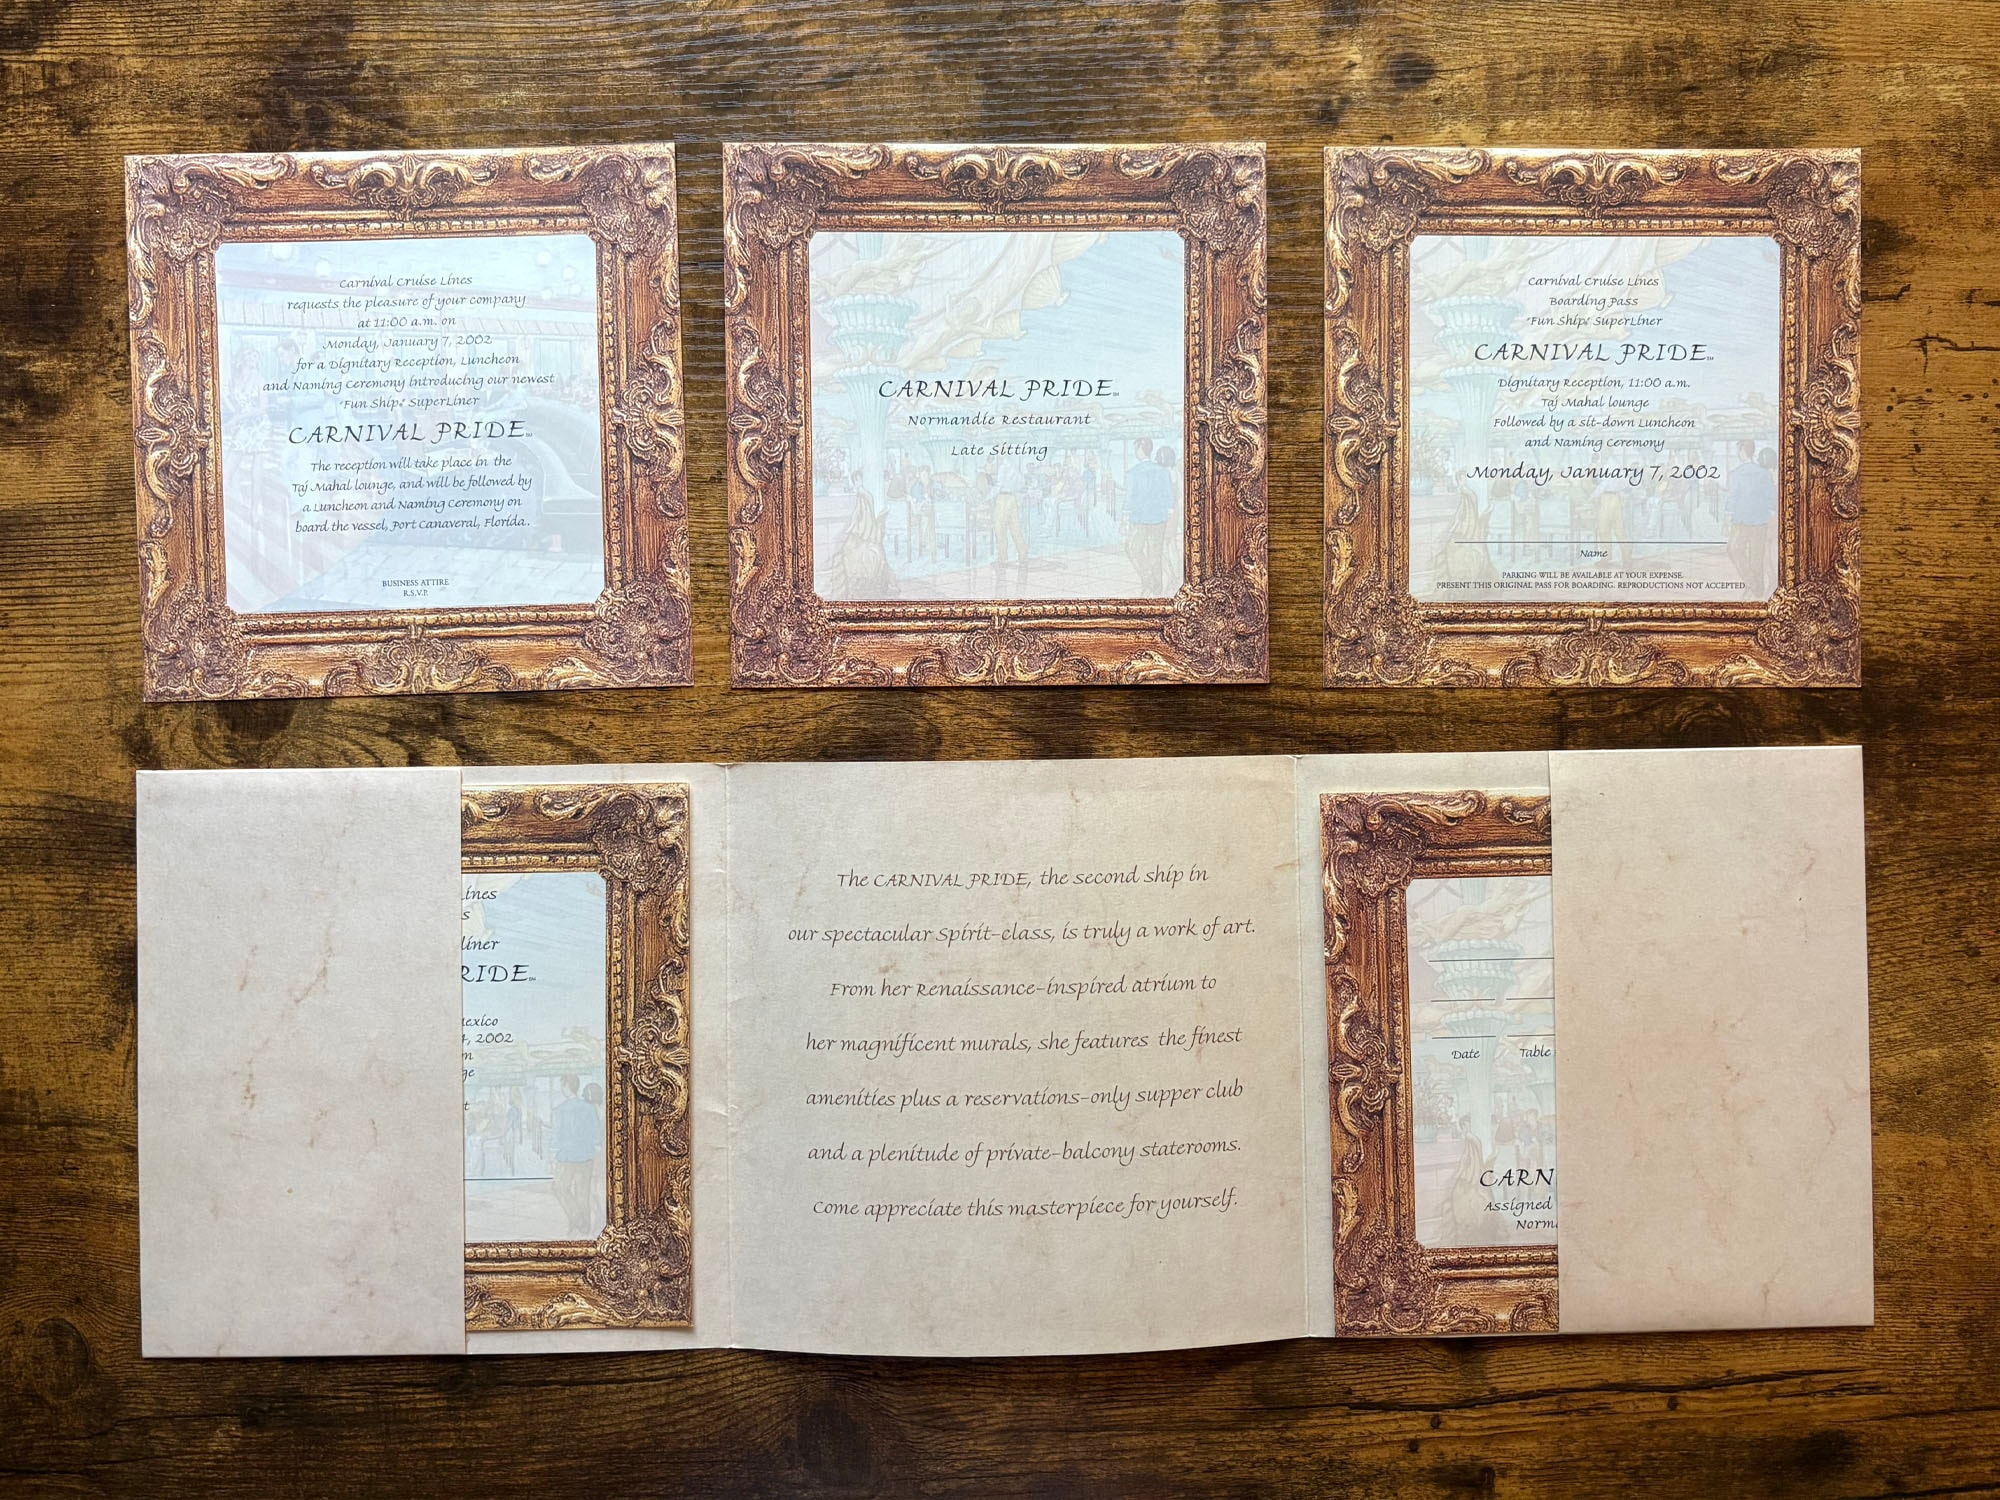 Carnival Cruise Lines
requests the pleasure of your company
at 11:00 a.m. on
Monday, January 7, 2002
for a Dignitary Reception, Luncheon
and Naming Ceremony introducing our newest
"Fun Ship®" SuperLiner
CARNIVAL PRIDE℠
The reception will take place in the
Taj Mahal lounge, and will be followed by
a Luncheon and Naming Ceremony on
board the vessel, Port Canaveral, Florida.
BUSINESS ATTIRE
R.S.V.P.
CARNIVAL PRIDE℠
Normandie Restaurant
Late Sitting
Carnival Cruise Lines
Boarding Pass
"Fun Ship®" SuperLiner
CARNIVAL PRIDE℠
Dignitary Reception, 11:00 a.m.
Taj Mahal lounge
Followed by a sit-down Luncheon
and Naming Ceremony
Monday, January 7, 2002
Name
PARKING WILL BE AVAILABLE AT YOUR EXPENSE.
PRESENT THIS ORIGINAL PASS FOR BOARDING. REPRODUCTIONS NOT ACCEPTED.
ines
s
liner
RIDE℠
exico
, 2002
n
ge
t
The CARNIVAL PRIDE, the second ship in
our spectacular Spirit-class, is truly a work of art.
From her Renaissance-inspired atrium to
her magnificent murals, she features the finest
amenities plus a reservations-only supper club
and a plenitude of private-balcony staterooms.
Come appreciate this masterpiece for yourself.
Date Table
CARN
Assigned
Norm